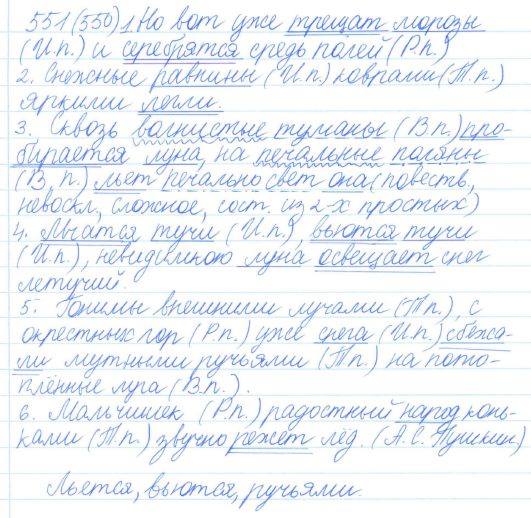 551(550) 1. Но вот уже трещат морозы
(И.п.) и серебрятся средь полей (Р.п.)
2. Снежные равнины (И.п.) коврами (Т.п.)
яркими легли.
3. Сквозь волнистые туманы (В.п.) про-
бирается луна, на печальные поляны
(В.п.) льет печально свет она (повеств.,
невоскл., сложное, сост. из 2-х простых)
4. Мчатся тучи (И.п.), вьются тучи
(И.п.), невидимкою луна освещает снег
летучий.
5. Гонимы внешними лучами (Т.п.), с
окрестных гор (Р.п.) уже снега (И.п.) сбежа-
ли мутными ручьями (Т.п.) на пото-
плённые луга (В.п.).
6. Мальчишек (Р.п.) радостный народ конь-
ками (Т.п.) звучно режет лёд. (А.С. Пушкин)
Льется, вьются, ручьями.